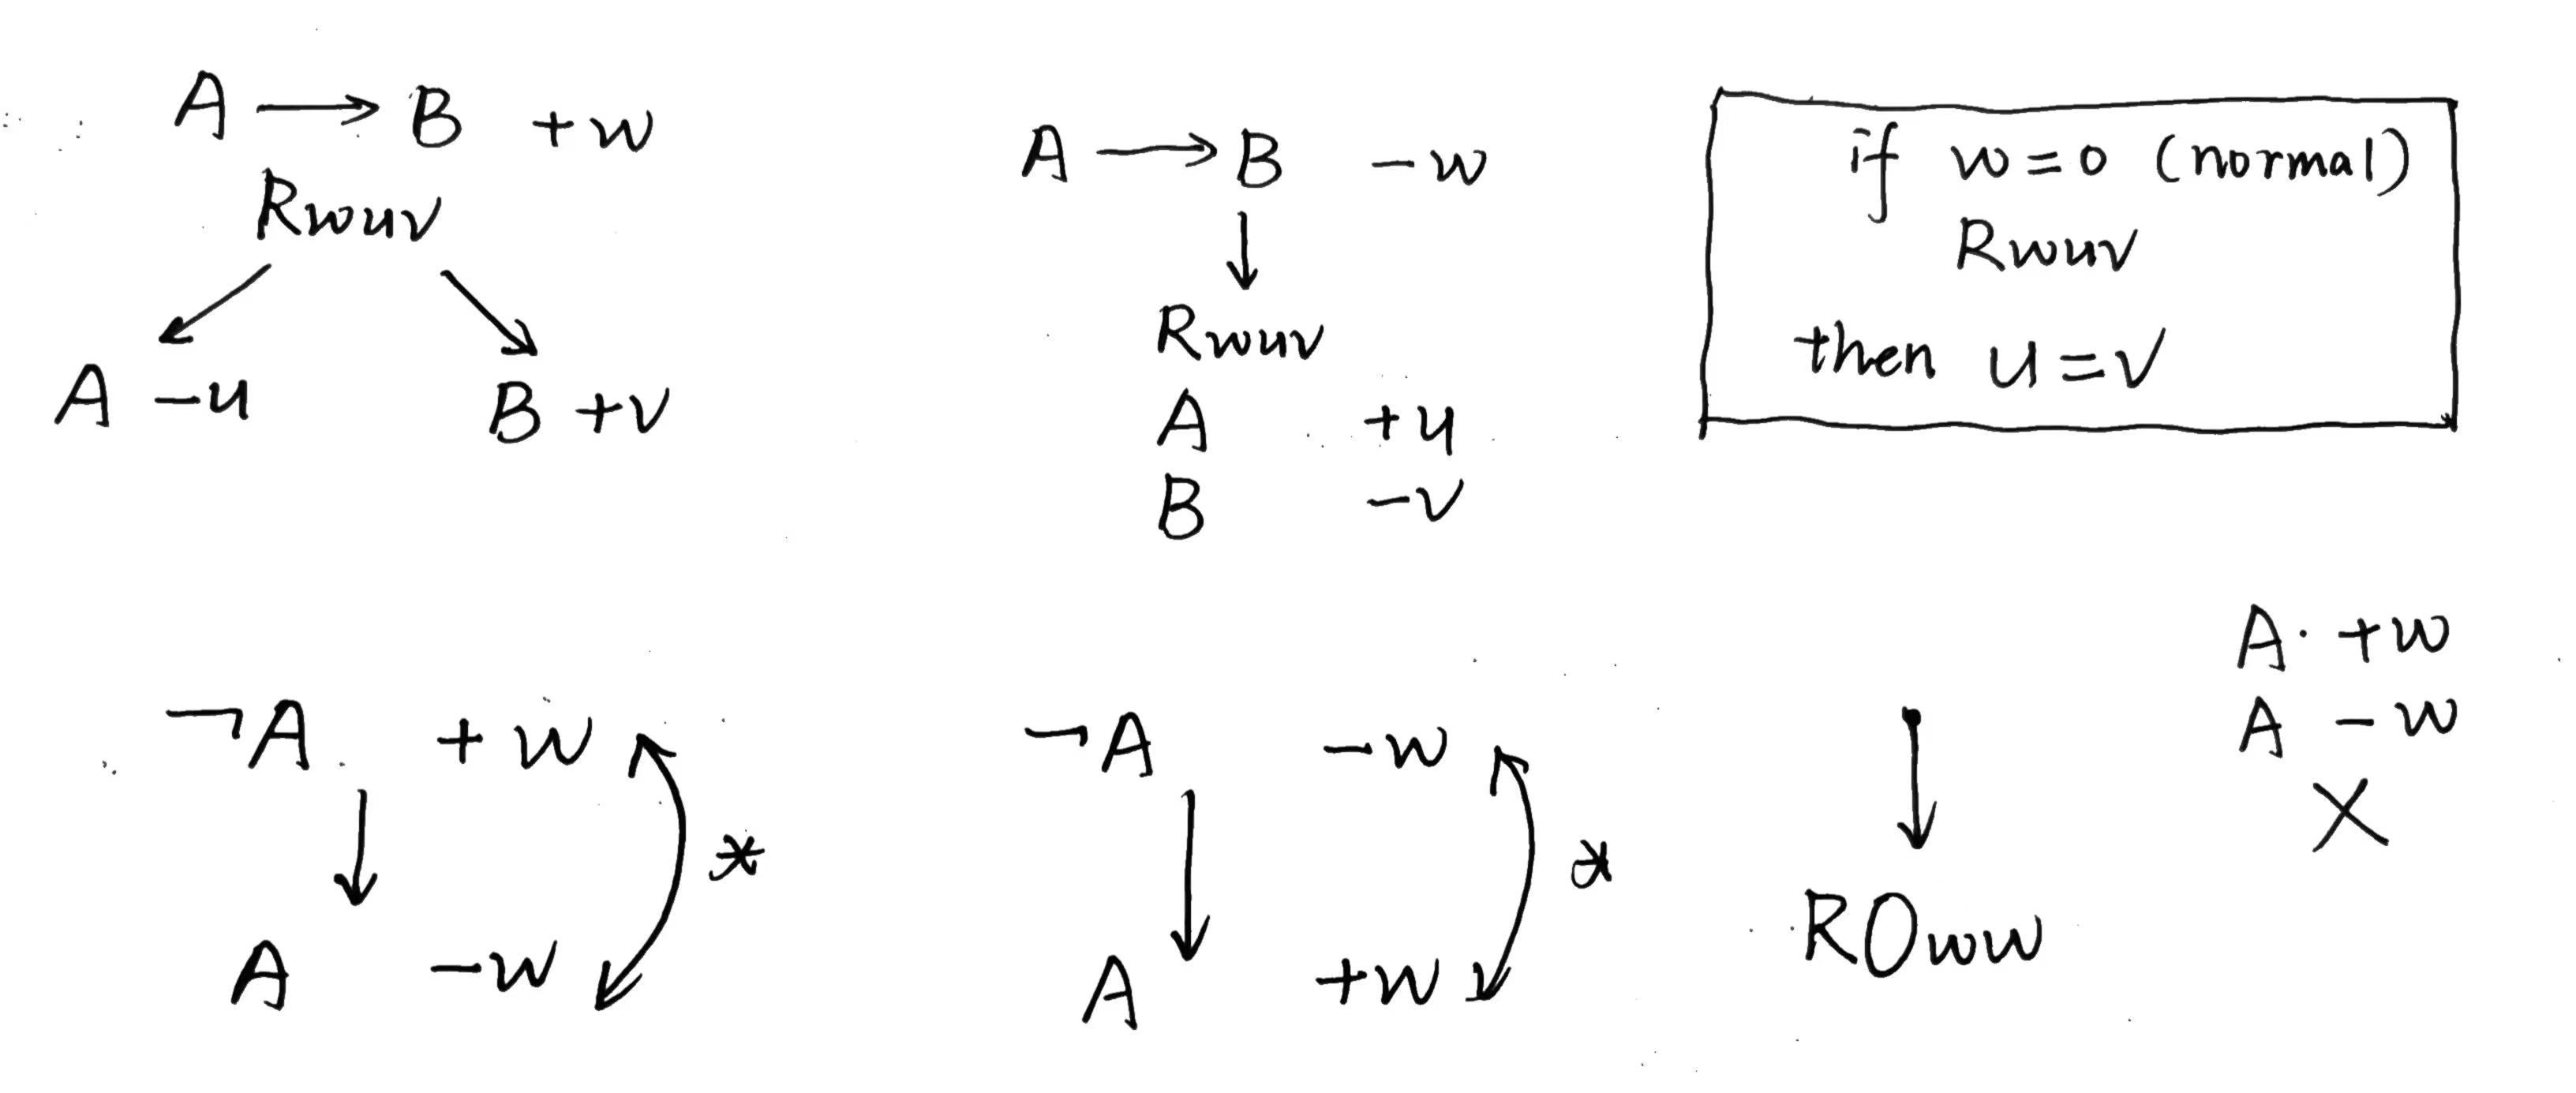 A → B +w
Rwuv
A -u B +v
A → B -w
Rwuv
A +u
B -v
if w=0 (normal)
Rwuv
then u=v
¬A +w
*
A -w
¬A -w
*
A +w
R0ww
A +w
A -w
X